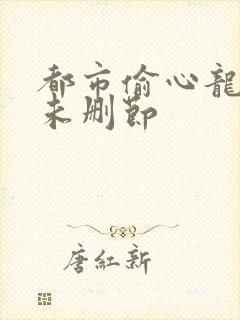 都市偷心龍
未删節
唐紅新